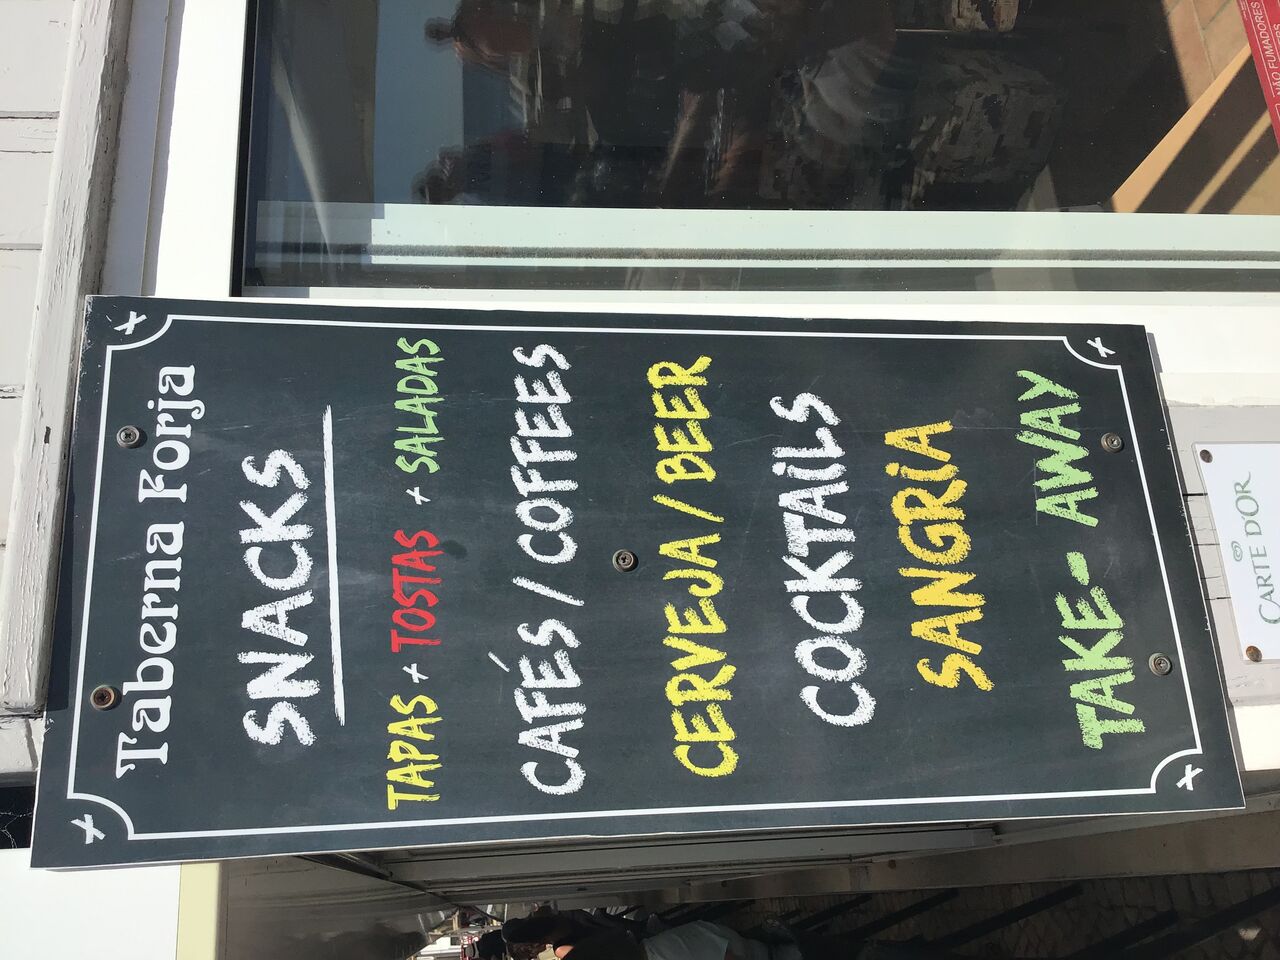 Taberna Forja
SNACKS
TAPAS + TOSTAS + SALADAS
CAFÉS / COFFEES
CERVEJA / BEER
COCKTAiLS
SANGRiA
TAKE- AWAY
CARTE D'OR
NÃO FUMADORES